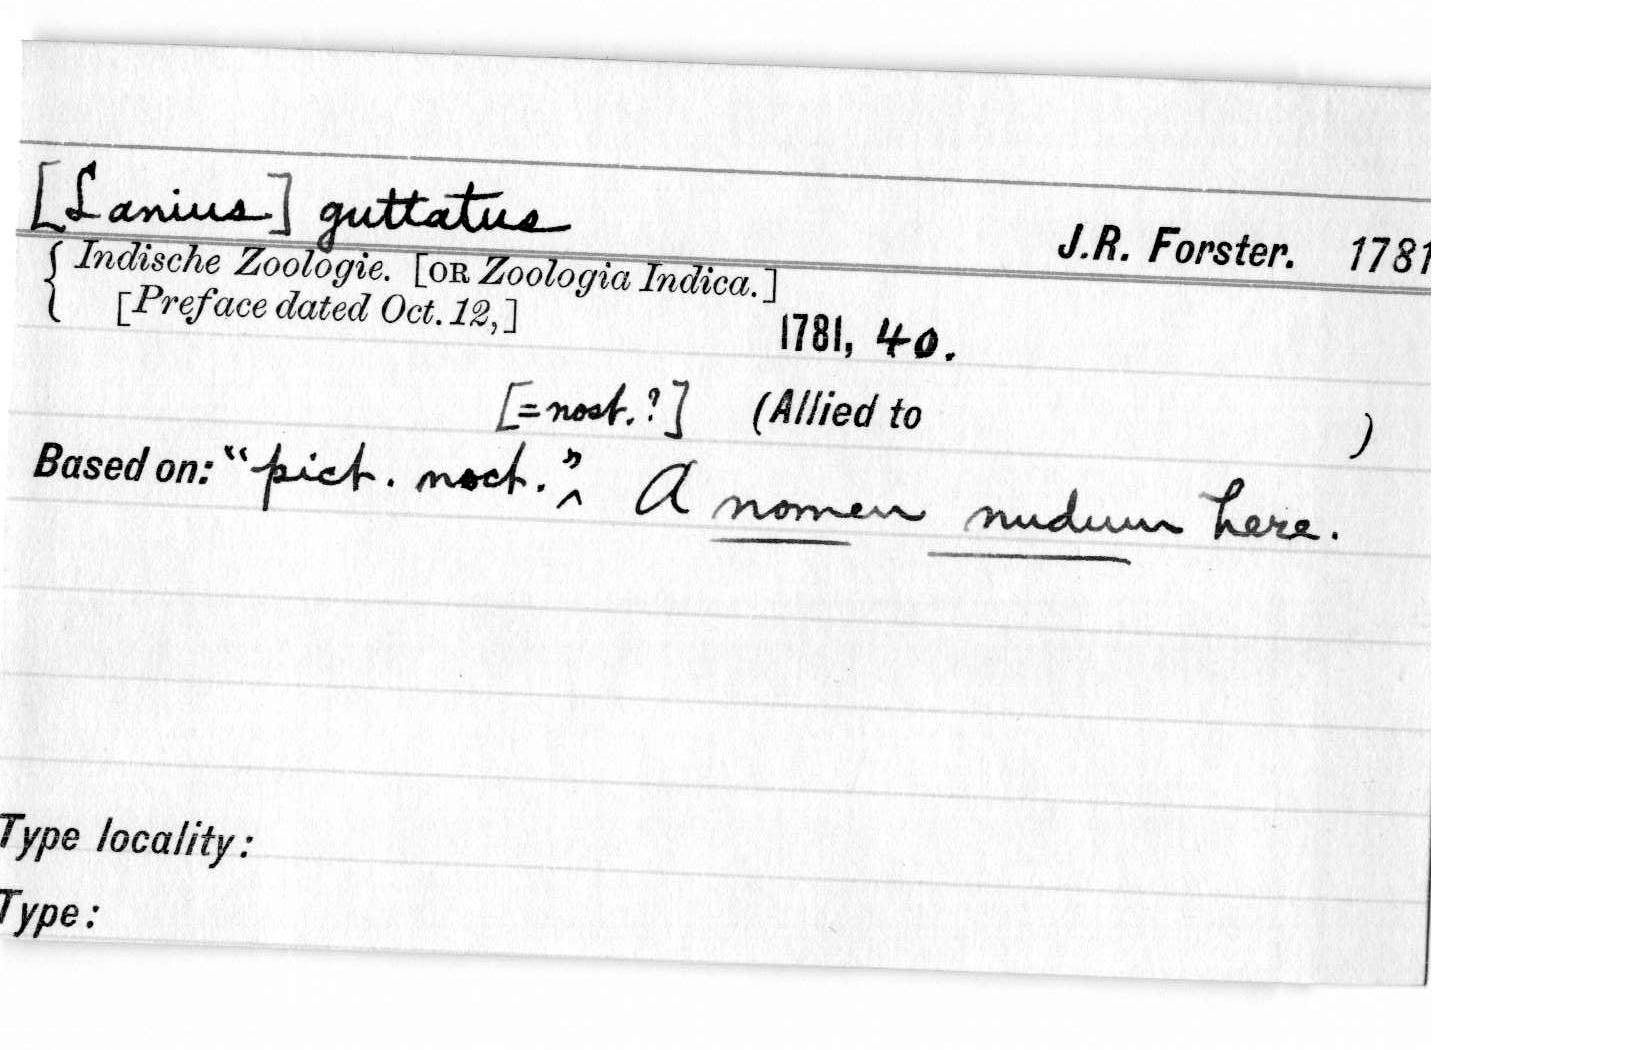 [Lanius] guttatus
J.R. Forster. 1781
{ Indische Zoologie. [OR Zoologia Indica.]
[Preface dated Oct. 12,]
1781, 40.
[=nost.?] (Allied to )
Based on: "pict. noct." ^ A nomen nudum here.
Type locality:
Type: